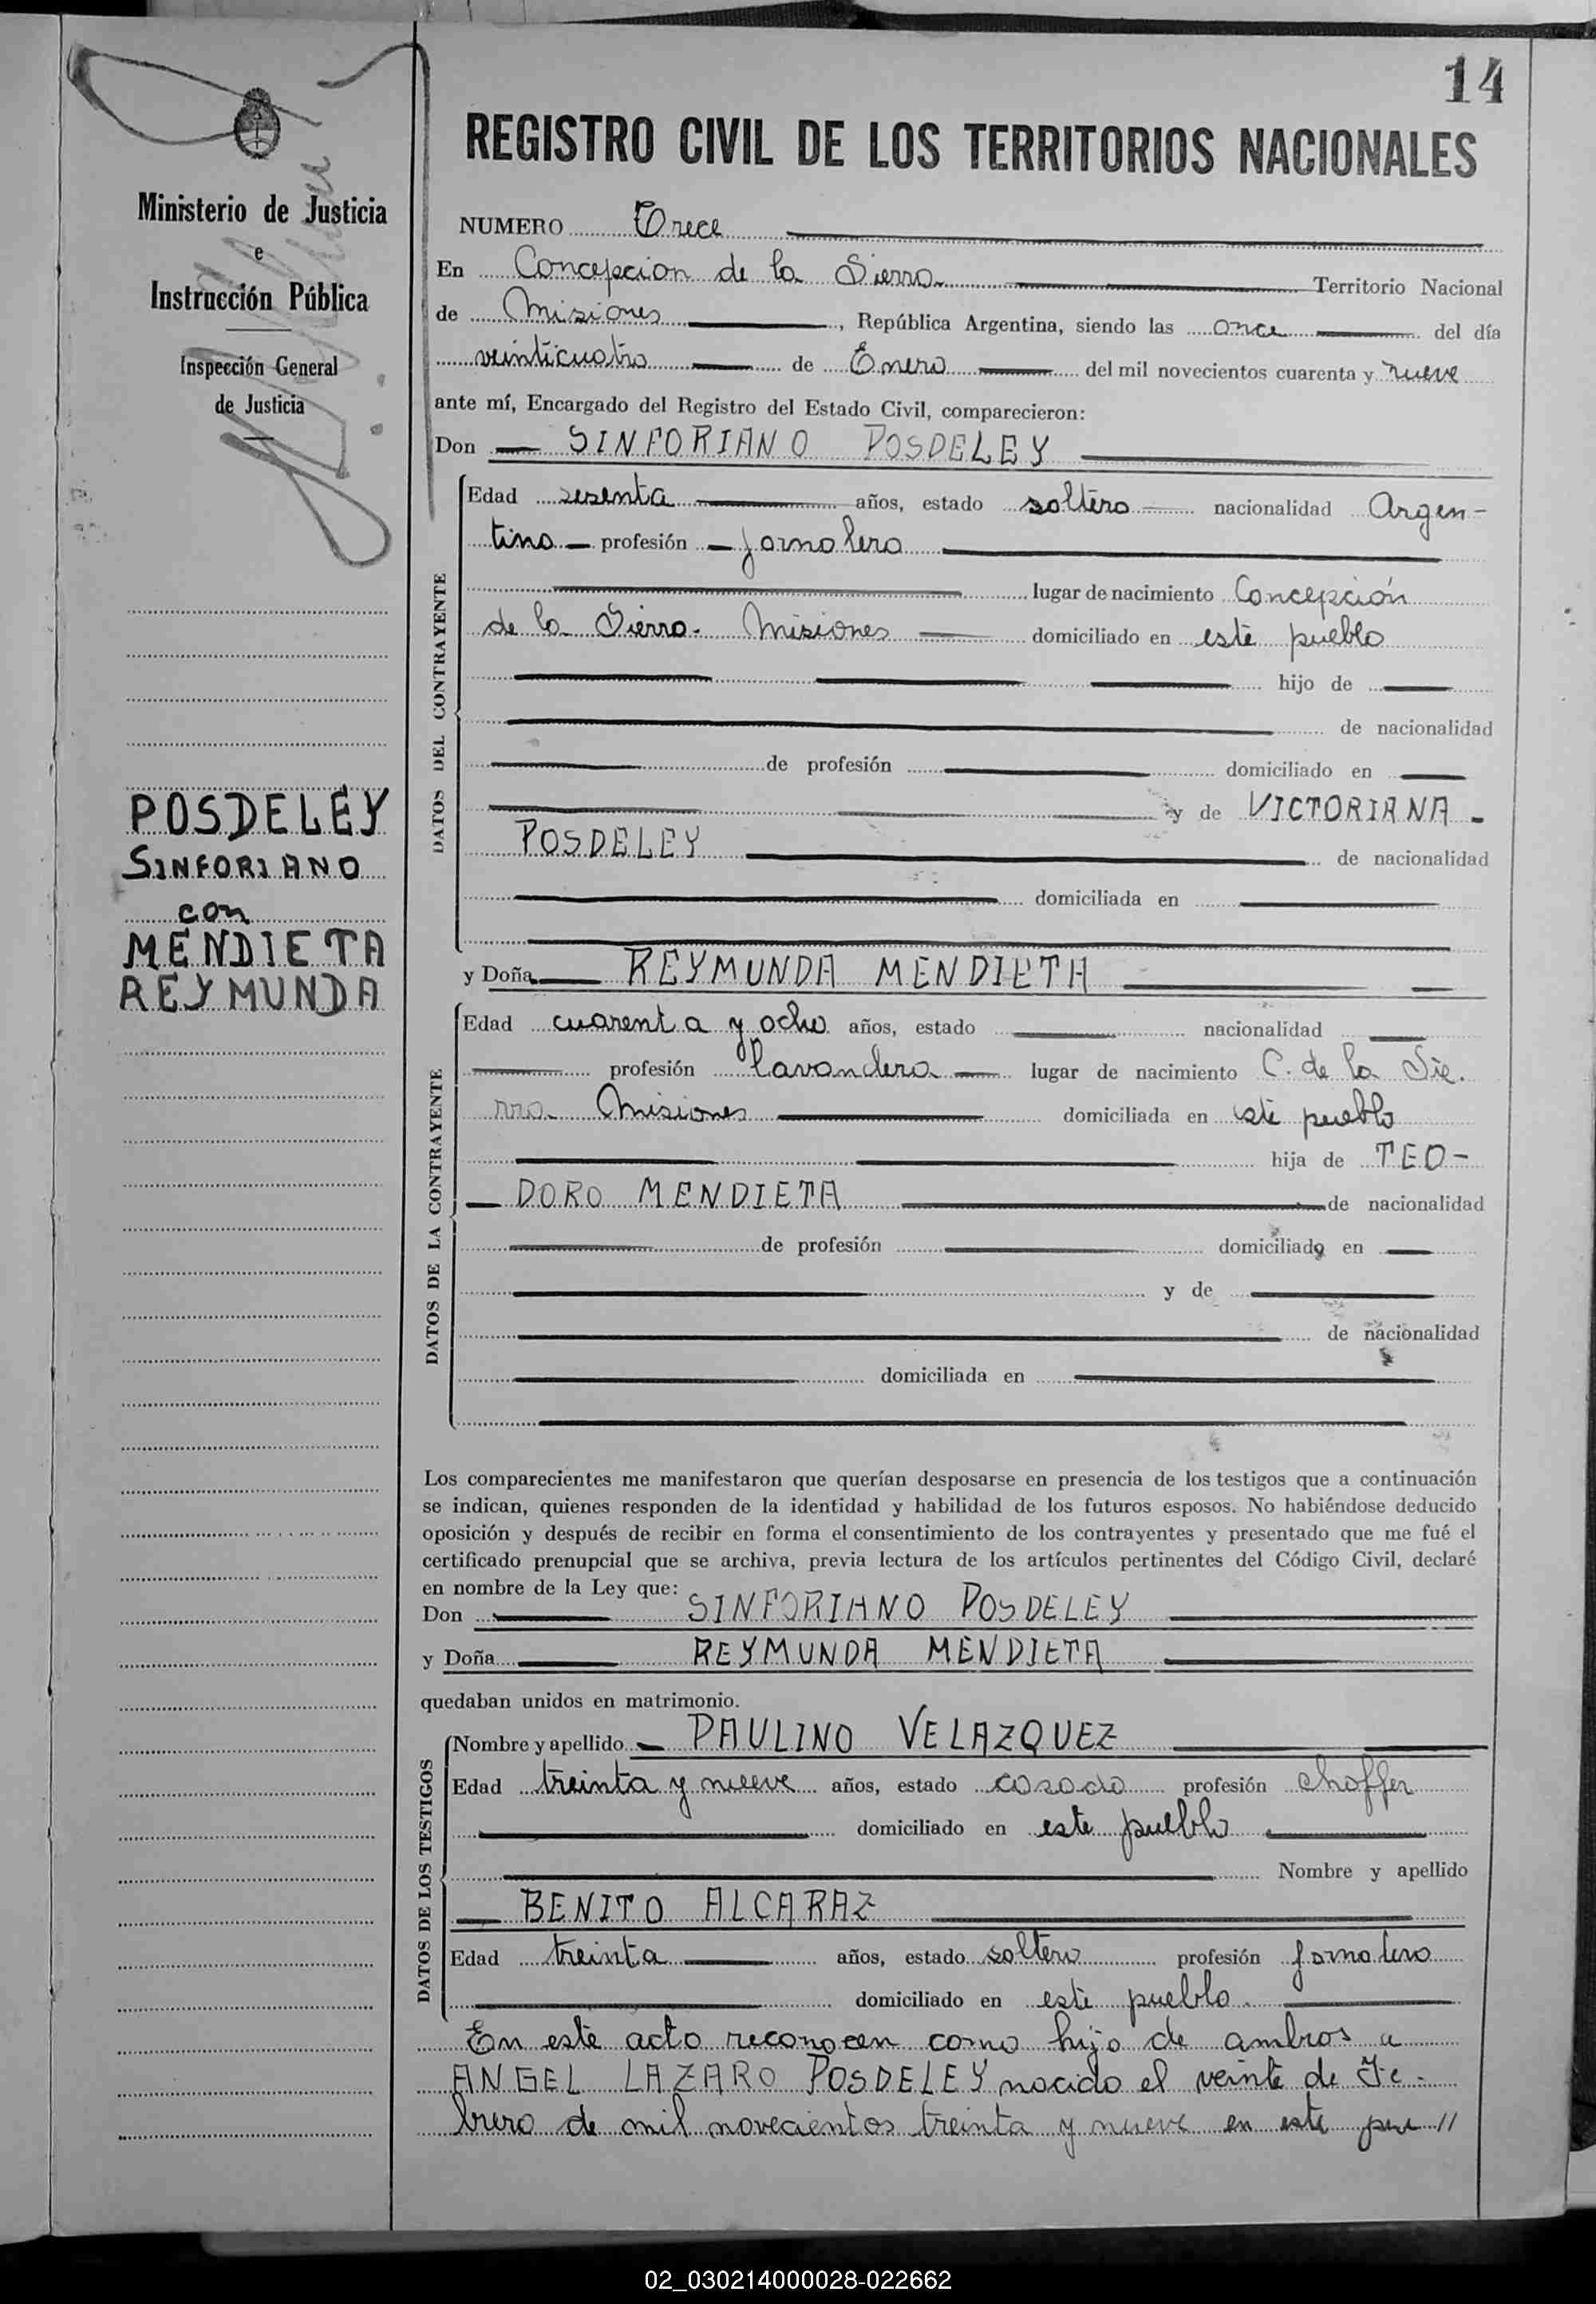 14
REGISTRO CIVIL DE LOS TERRITORIOS NACIONALES
Ministerio de Justicia
e
Instrucción Pública
Inspección General
de Justicia
POSDELEY
SINFORIANO
con
MENDIETA
REYMUNDA
NUMERO Trece
En Concepcion de la Sierra. Territorio Nacional
de Misiones, República Argentina, siendo las once del día
veinticuatro de Enero del mil novecientos cuarenta y nueve
ante mí, Encargado del Registro del Estado Civil, comparecieron:
Don SINFORIANO POSDELEY
DATOS DEL CONTRAYENTE
Edad sesenta años, estado soltero nacionalidad Argen-
tino profesión jornalero
lugar de nacimiento Concepción
de la Sierra. Misiones domiciliado en este pueblo
hijo de
de nacionalidad
de profesión domiciliado en
y de VICTORIANA
POSDELEY de nacionalidad
domiciliada en
y Doña REYMUNDA MENDIETA
DATOS DE LA CONTRAYENTE
Edad cuarenta y ocho años, estado nacionalidad
profesión lavandera lugar de nacimiento C. de la Sie.
rra. Misiones domiciliada en este pueblo
hija de TEO-
DORO MENDIETA de nacionalidad
de profesión domiciliado en
y de
de nacionalidad
domiciliada en
Los comparecientes me manifestaron que querían desposarse en presencia de los testigos que a continuación
se indican, quienes responden de la identidad y habilidad de los futuros esposos. No habiéndose deducido
oposición y después de recibir en forma el consentimiento de los contrayentes y presentado que me fué el
certificado prenupcial que se archiva, previa lectura de los artículos pertinentes del Código Civil, declaré
en nombre de la Ley que:
Don SINFORIANO POSDELEY
y Doña REYMUNDA MENDIETA
quedaban unidos en matrimonio.
DATOS DE LOS TESTIGOS
Nombre y apellido PAULINO VELAZQUEZ
Edad treinta y nueve años, estado casado profesión choffer
domiciliado en este pueblo
Nombre y apellido
BENITO ALCARAZ
Edad treinta años, estado soltero profesión jornalero
domiciliado en este pueblo.
En este acto reconocen como hijo de ambros a
ANGEL LAZARO POSDELEY nacido el veinte de Fe-
brero de mil novecientos treinta y nueve en este pue //
02_030214000028-022662